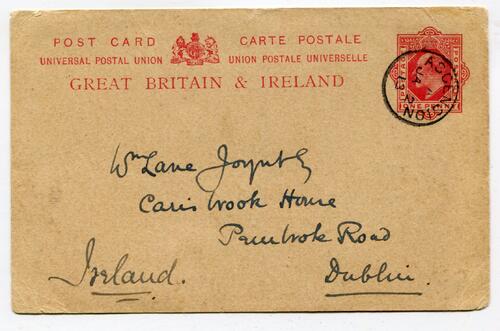 POST CARD CARTE POSTALE
UNIVERSAL POSTAL UNION UNION POSTALE UNIVERSELLE
GREAT BRITAIN & IRELAND
POSTAGE
ONE PENNY
ASCENSION
Wm Lane Joynt Esq
Carisbrook House
Pembroke Road
Ireland. Dublin.